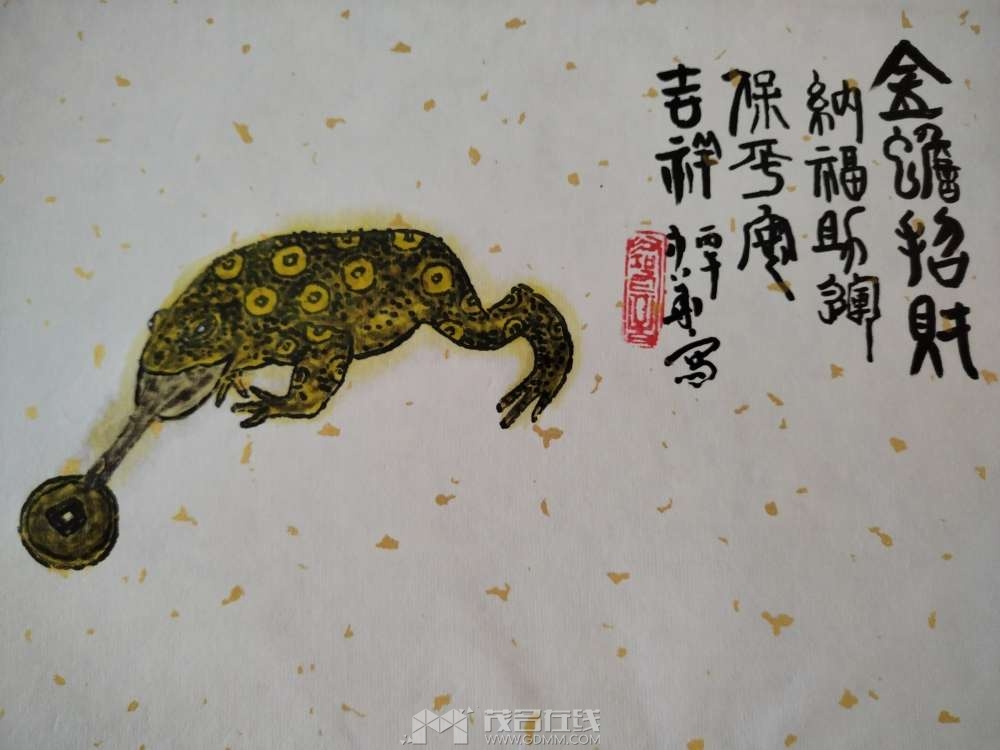 金蟾招財
納福助運
保平安
吉祥
丙午
寫
茂名在线
WWW.GDMM.COM